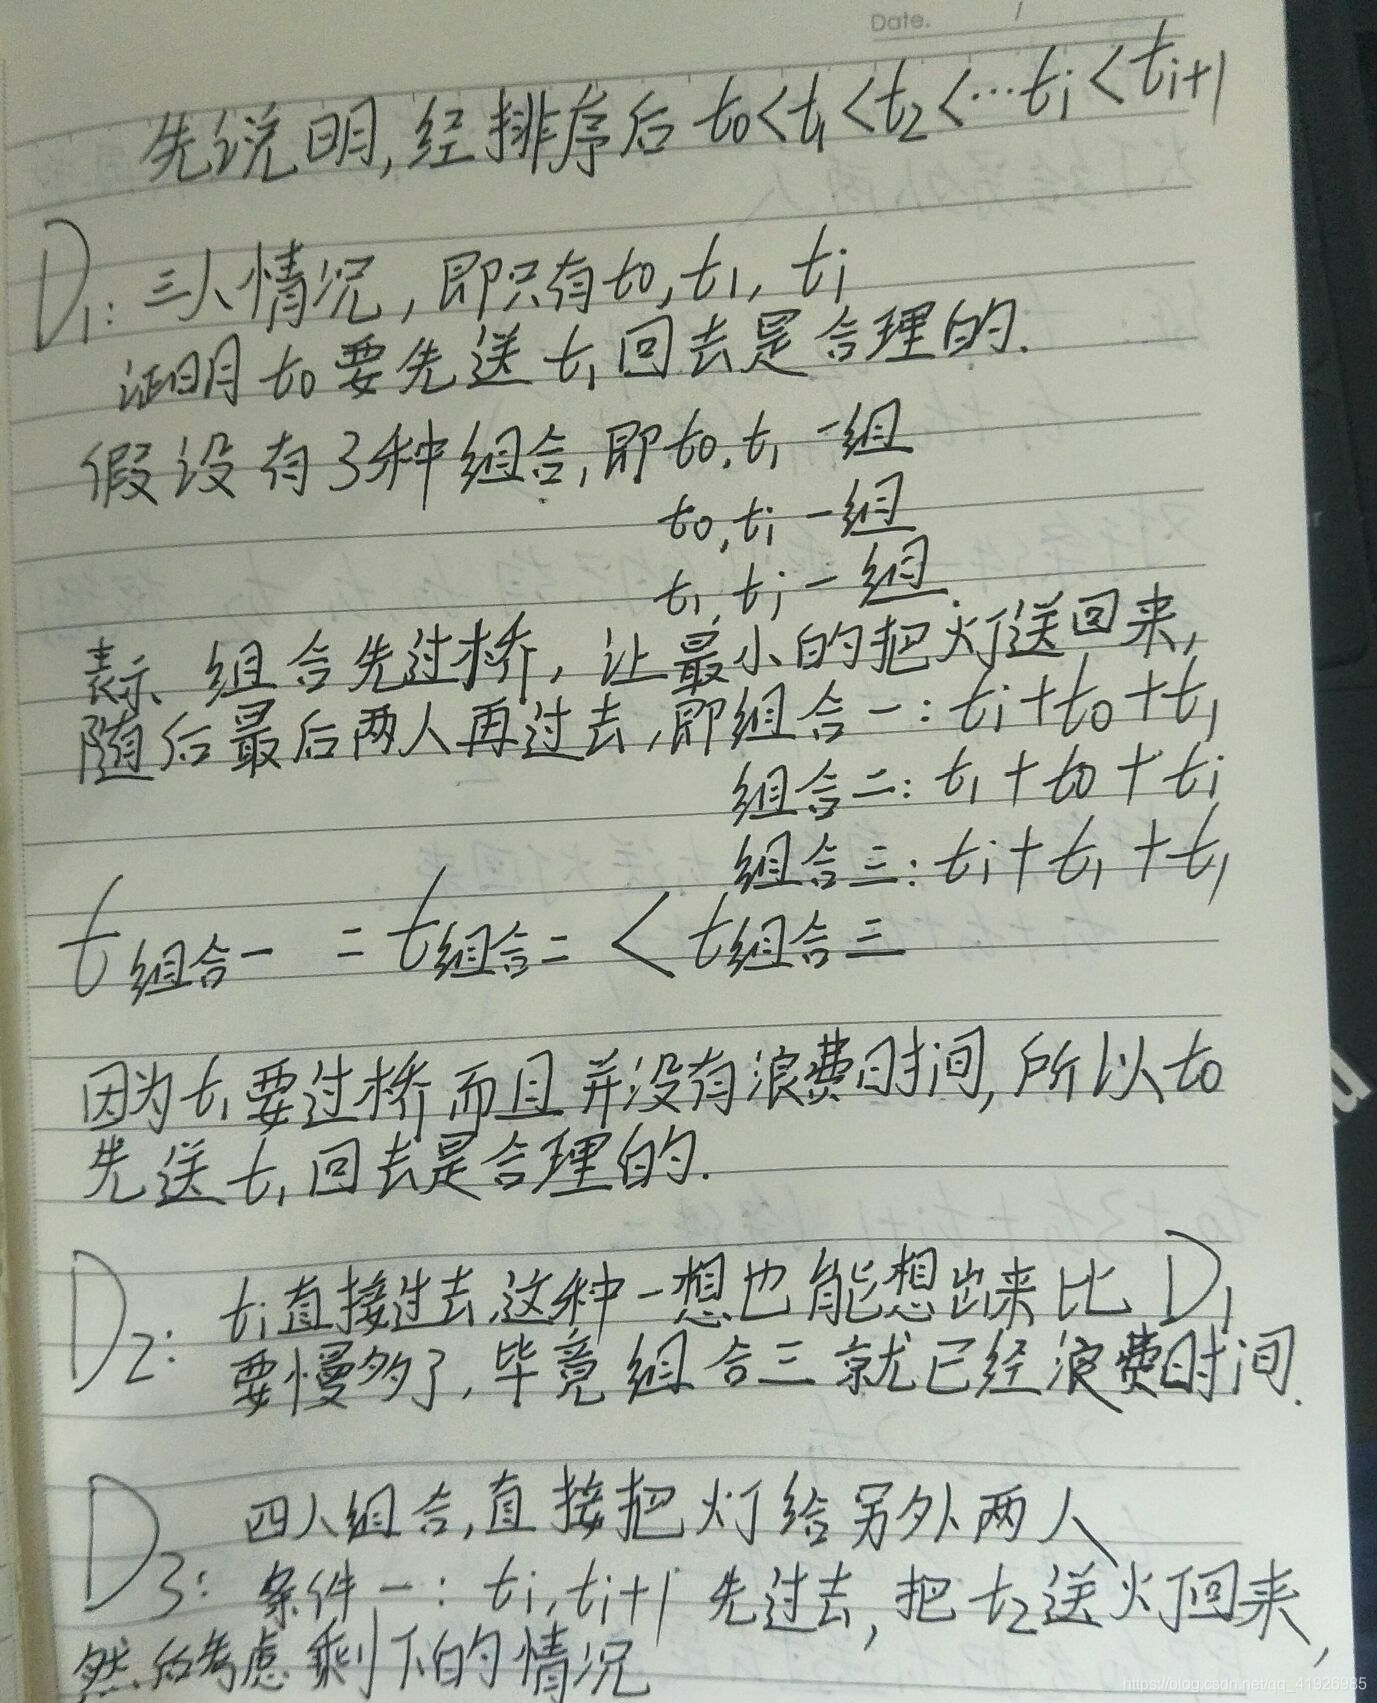 Date. 1
先说明,经排序后 t0<t1<t2<…ti<ti+1
D1: 三人情况,即只有t0,t1,ti
证明t0要先送t1回去是合理的.
假设有3种组合,即t0,t1一组
t0,ti一组
t1,ti一组
表示 组合先过桥,让最小的把灯送回来,
随后最后两人再过去,即组合一:ti+t0+t1
组合二:t1+t0+ti
组合三:ti+t1+t1
t组合一 = t组合二 < t组合三
因为t1要过桥而且并没有浪费时间,所以t0
先送t1回去是合理的.
D2: ti直接过去,这种一想也能想出来比D1
要慢多了,毕竟组合三就已经浪费时间.
D3: 四人组合,直接把灯给另外两人
条件一:ti,ti+1先过去,把t2送灯回来,
然后考虑剩下的情况
https://blog.csdn.net/qq_41926985